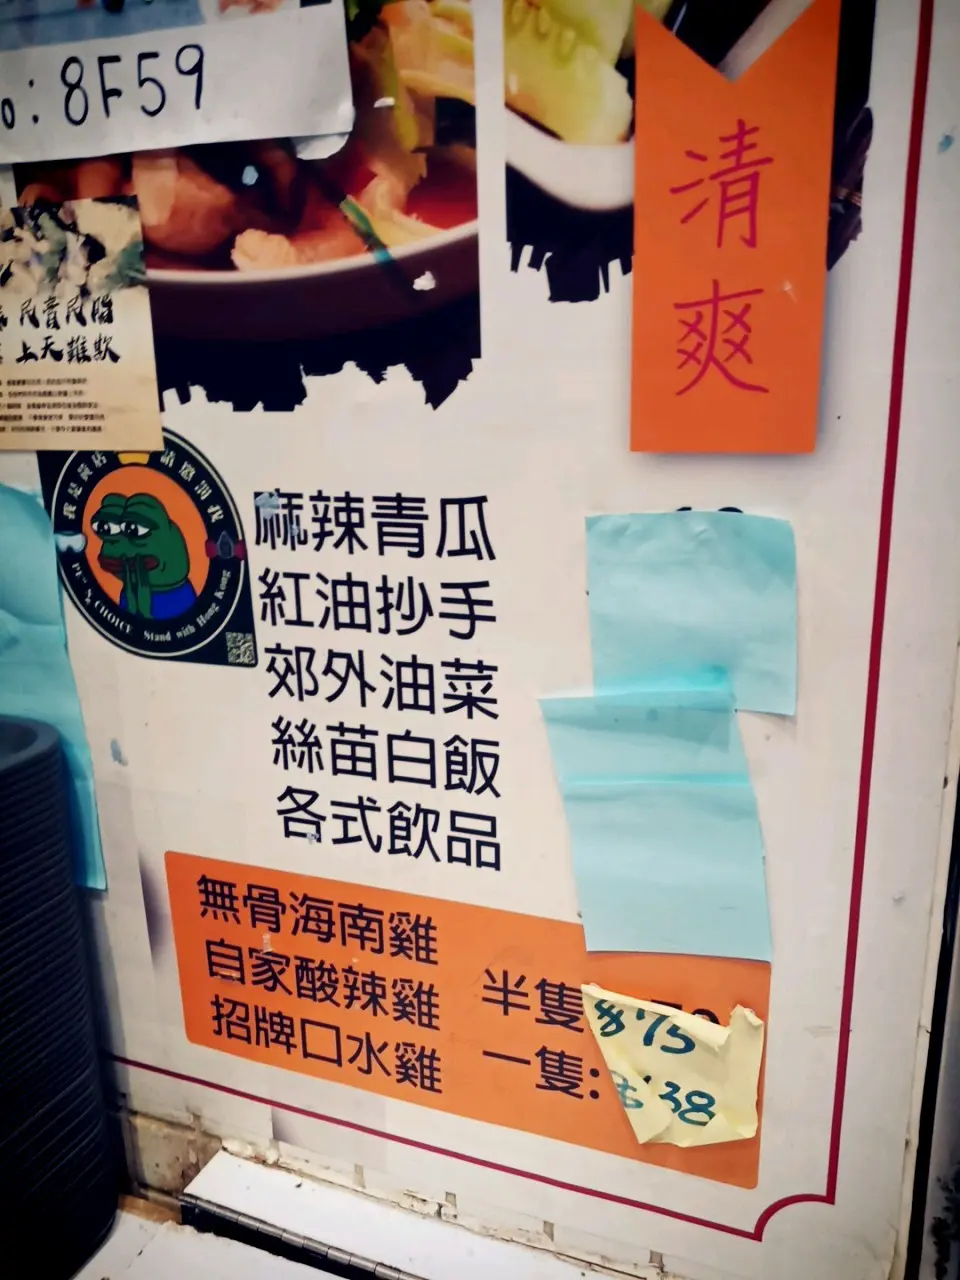 o: 8F59
清
爽
民膏民脂
上天難欺
我是黃店 請懲罰我
PEPE'S CHOICE Stand with Hong Kong
麻辣青瓜
紅油抄手
郊外油菜
絲苗白飯
各式飲品
無骨海南雞
自家酸辣雞 半隻
招牌口水雞 一隻:
$75
$138